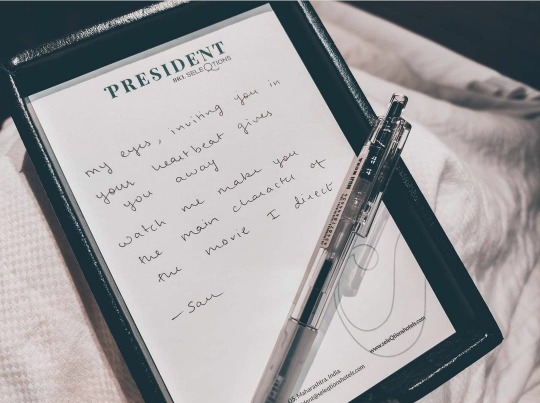 PRESIDENT
IHCL SELEQTIONS
my eyes, inviting you in
your heartbeat gives
you away
watch me make you
the main character of
the movie I direct
- Sau
www.seleqtionshotels.com
Maharashtra, India.
@seleqtionshotels.com